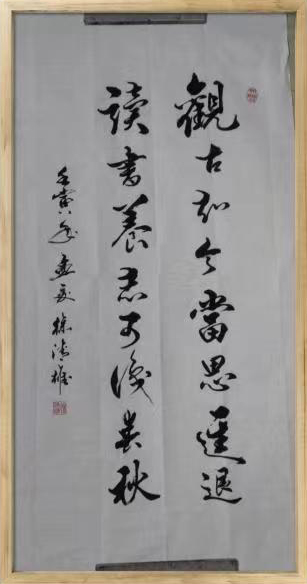 觀古知今當思進退
讀書養志可識春秋
壬寅年孟夏徐